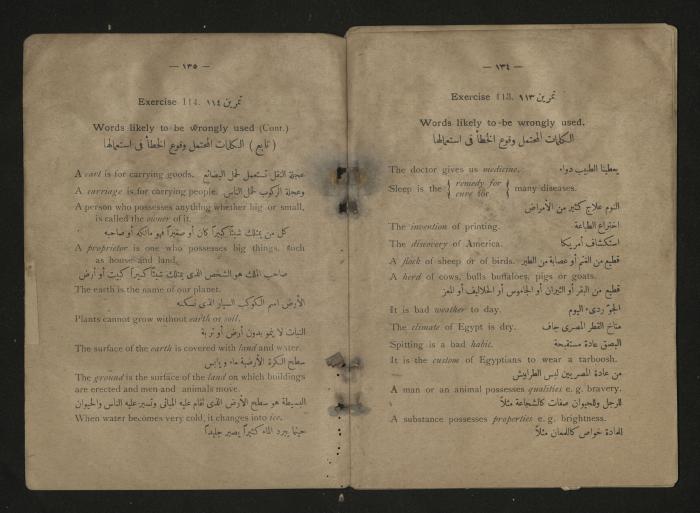 — ١٣٤ —
Exercise 113. تمرين ١١٣
Words likely to be wrongly used.
الكلمات المحتمل وقوع الخطأ فى استعمالها
The doctor gives us medicine. يعطينا الطبيب دواء
Sleep is the { remedy for } many diseases.
cure for
النوم علاج كثير من الأمراض
The invention of printing. اختراع الطباعة
The discovery of America. استكشاف أمريكا
A flock of sheep or of birds. قطيع من الغنم أو عصابة من الطير
A herd of cows, bulls buffaloes, pigs or goats.
قطيع من البقر أو الثيران أو الجاموس أو الحلاليف أو المعز
It is bad weather to day. الجو ردىء اليوم
The climate of Egypt is dry. مناخ القطر المصرى جاف
Spitting is a bad habit. البصق عادة مستقبحة
It is the custom of Egyptians to wear a tarboosh.
من عادة المصريين لبس الطرابيش
A man or an animal possesses qualities e. g. bravery.
للرجل وللحيوان صفات كالشجاعة مثلاً
A substance possesses properties e. g. brightness.
للمادة خواص كاللمعان مثلاً
— ١٣٥ —
Exercise 114. تمرين ١١٤
Words likely to be wrongly used (Cont.)
( تابع ) الكلمات المحتمل وقوع الخطأ فى استعمالها
A cart is for carrying goods. عجلة النقل تستعمل لحمل البضائع
A carriage is for carrying people. وعجلة الركوب لحمل الناس
A person who possesses anything whether big or small,
is called the owner of it.
كل من يمتلك شيئاً كبيراً كان أو صغيراً فهو مالكه أو صاحبه
A proprietor is one who possesses big things, such
as house and land.
صاحب الملك هو الشخص الذى يمتلك شيئاً كبيراً كبيت أو أرض
The earth is the name of our planet.
الأرض اسم الكوكب السيار الذى نسكنه
Plants cannot grow without earth or soil.
النبات لا ينمو بدون أرض أو تربة
The surface of the earth is covered with land and water.
سطح الكرة الأرضية ماء ويابس
The ground is the surface of the land on which buildings
are erected and men and animals move.
البسيطة هو سطح الأرض الذى تقام عليه المبانى وتسير عليه الناس والحيوان
When water becomes very cold, it changes into ice.
حينما يبرد الماء كثيراً يصير جليداً